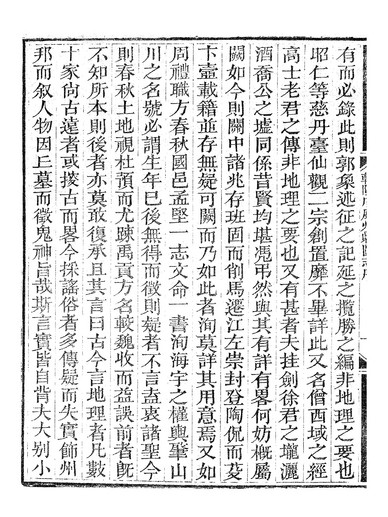 有而必錄此則郭象述征之記延之攬勝之編非地理之要也
昭仁等慈丹臺仙觀二宗創置靡不畢詳此又名僧西域之經
高士老君之傳非地理之要也又有甚者夫挂劍徐君之壠灑
酒喬公之墟同係昔賢均堪憑弔然與其有詳有畧何妨概屬
闕如今則關中諸兆存班固而削馬遷江左崇封登陶侃而芟
卞壼載籍並存無疑可闕而乃如此者洵莫詳其用意焉又如
周禮職方春秋國邑孟堅一志文命一書洵海宇之權輿鞏山
川之名號必謂生年巳後無得而徵則疑者不言盍衷諸聖今
則春秋土地視杜預而尤踈禹貢方名較魏收而益謑前者旣
不知所本則後者亦莫敢復承且其言曰古今言地理者凡數
十家尙古遠者或搜古而畧今採謠俗者多傳疑而失實飾州
邦而叙人物因丘墓而徵鬼神旨哉斯言實皆自背夫大別小